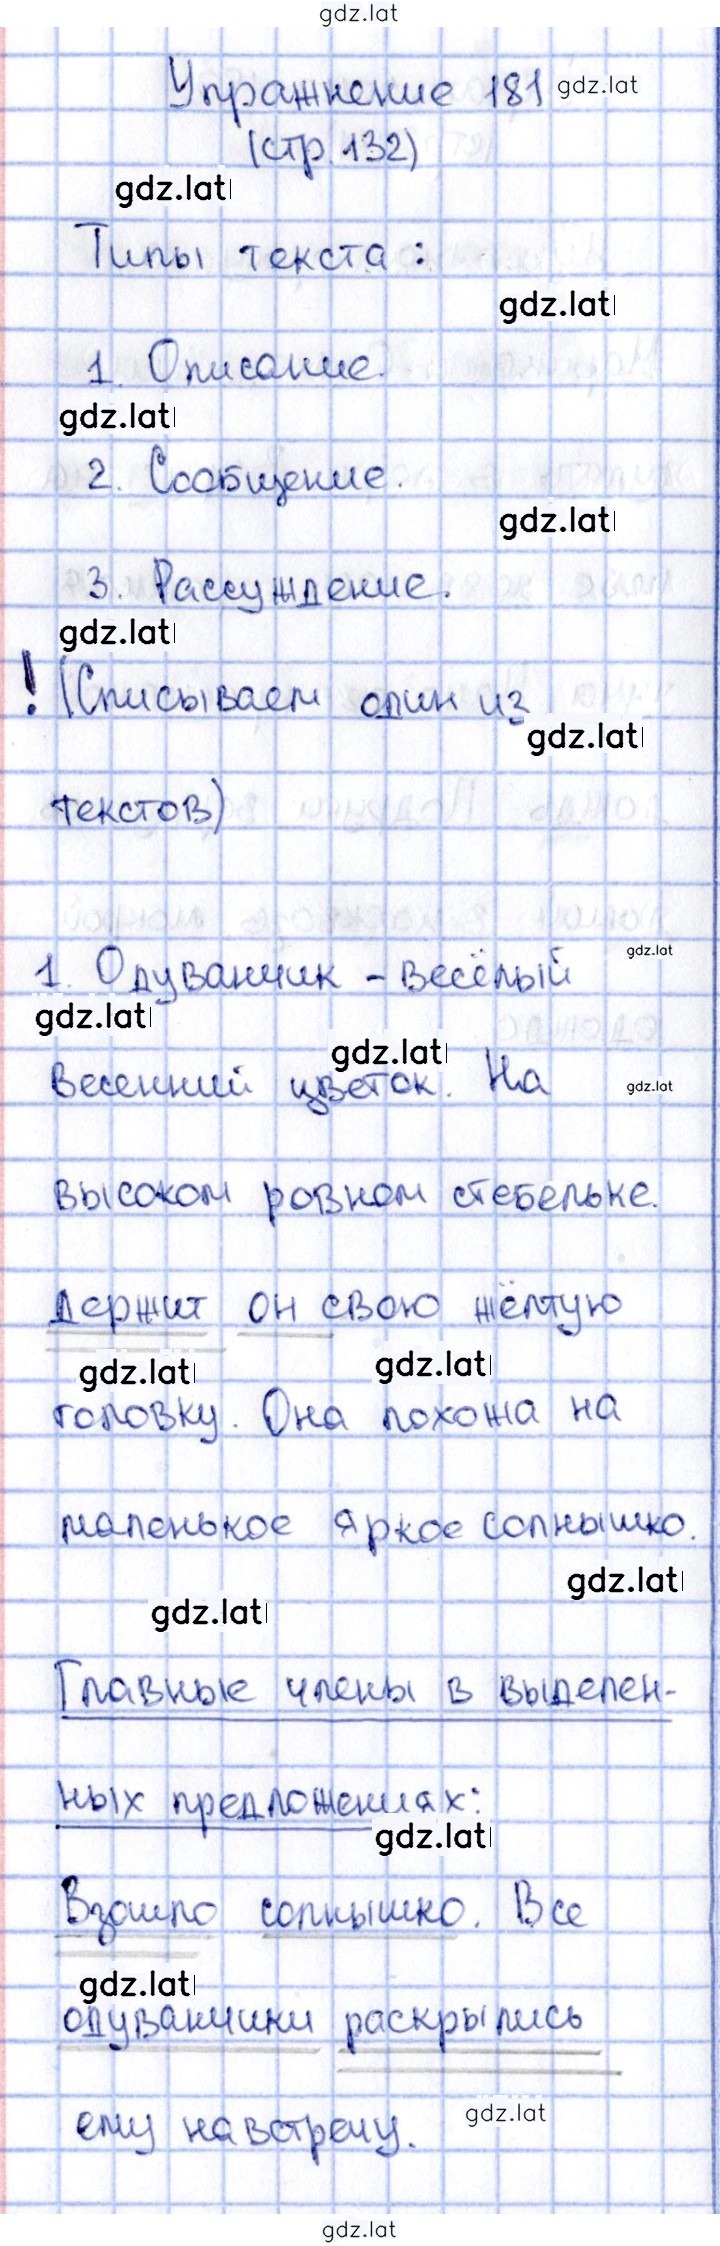 gdz.lat
Упражнение 181 gdz.lat
(стр. 132)
gdz.lat
Типы текста:
gdz.lat
1. Описание.
gdz.lat
2. Сообщение.
gdz.lat
3. Рассуждение.
gdz.lat
! (Списываем один из
gdz.lat
текстов)
gdz.lat
1. Одуванчик - весёлый
gdz.lat
gdz.lat
весенний цветок. На gdz.lat
высоком ровном стебельке.
держит он свою жёлтую
gdz.lat gdz.lat
головку. Она похожа на
маленькое яркое солнышко.
gdz.lat
gdz.lat
Главные члены в выделен-
ных предложениях:
gdz.lat
Взошло солнышко. Все
gdz.lat
одуванчики раскрылись
gdz.lat
ему навстречу.
gdz.lat